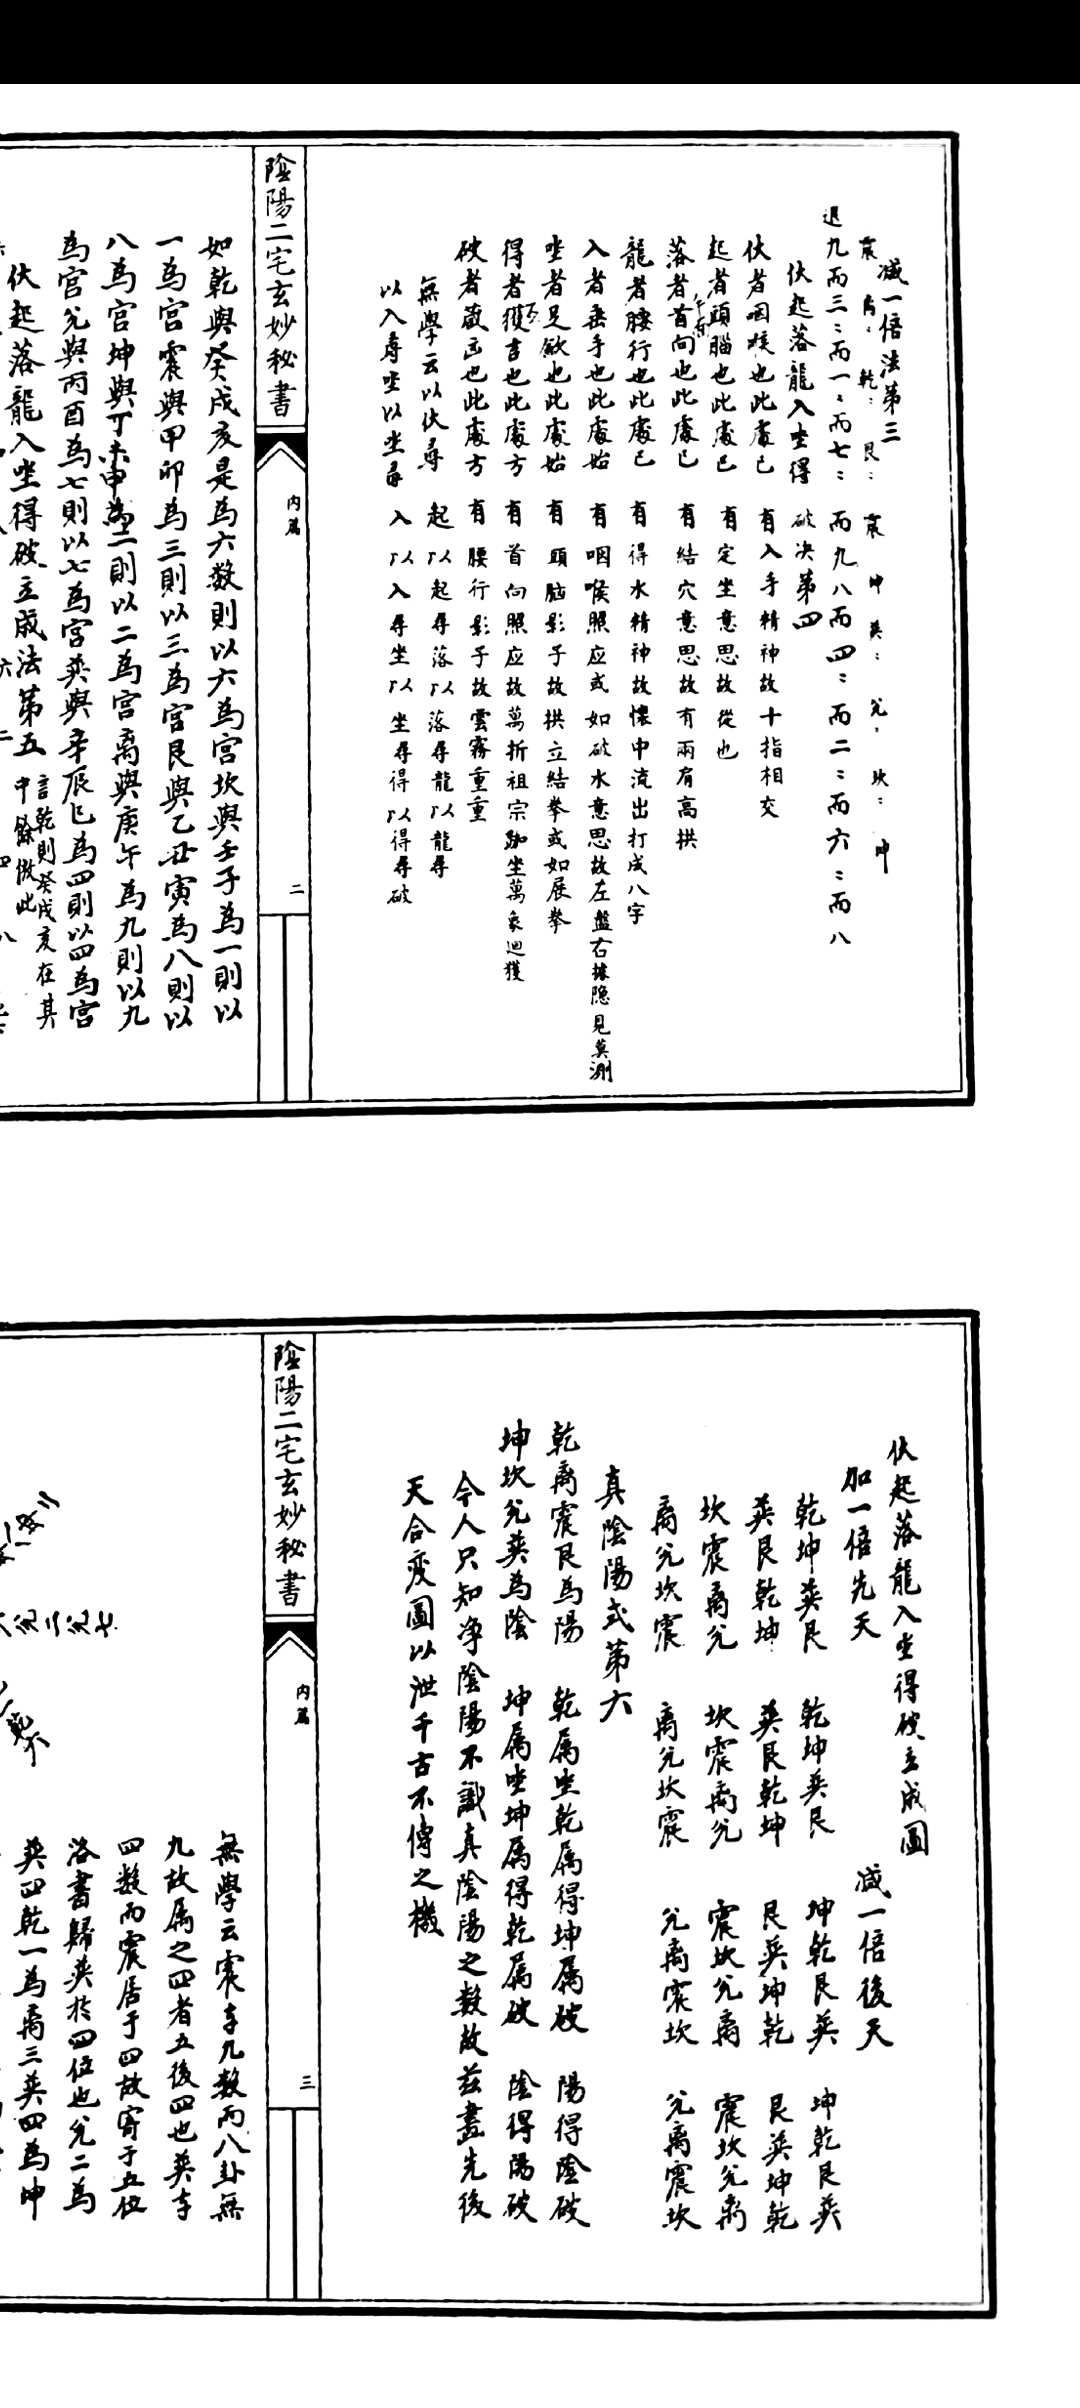 減一倍法第三
震 離 乾 艮 震 坤 巽 兌 坎 坤
退九而三〻而一〻而七〻而九八而四〻而二〻而六〻而八
伏起落龍入坐得破決第四
伏者咽喉也此處已有入手精神故十指相交
起者頭腦也此處已有定坐意思故從也
落者首向也此處已有結穴意思故有兩肩高拱
龍者腰行也此處已有得水精神故懷中流出打成八字
入者垂手也此處始有咽喉照应或如破水意思故左盤右據隐見莫測
坐者足歛也此處始有頭脑影子故拱立結拳或如展拳
得者獲吉也此處方有首向照应故萬折祖宗坐萬象迴獲
破者歲凶也此處方有腰行影子故雲霧重重
無學云以伏尋起以起尋落以落尋龍以龍尋
以入尋坐以坐尋入以入尋坐以坐尋得以得尋破
陰陽二宅玄妙秘書
内篇
二
如乾與癸戌亥是為六数則以六為宮坎與壬子為一則以
一為宮震與甲卯為三則以三為宮艮與乙丑寅為八則以
八為宮坤與丁未申為二則以二為宮离與庚午為九則以九
為宮兌與丙酉為七則以七為宮巽與辛辰巳為四則以四為宮
伏起落龍入坐得破立成法第五
言乾則癸戌亥在其
中餘倣此
伏起落龍入坐得破立成圖
加一倍先天 減一倍後天
乾坤巽艮 乾坤巽艮 坤乾艮巽 坤乾艮巽
巽艮乾坤 巽艮乾坤 艮巽坤乾 艮巽坤乾
坎震离兌 坎震离兌 震坎兌离 震坎兌离
离兌坎震 离兌坎震 兌离震坎 兌离震坎
真陰陽式第六
乾离震艮為陽 乾属坐乾属得坤属破 陽得陰破
坤坎兌巽為陰 坤属坐坤属得乾属破 陰得陽破
今人只知净陰陽不識真陰陽之数故茲畫先後
天合变圖以泄千古不傳之機
陰陽二宅玄妙秘書
内篇
三
無學云震夲九数而八卦無
九故属之四者五後四也巽夲
四数而震居于四故寄于五位
洛書歸巽於四位也兌二為
巽四乾一為离三巽四為坤